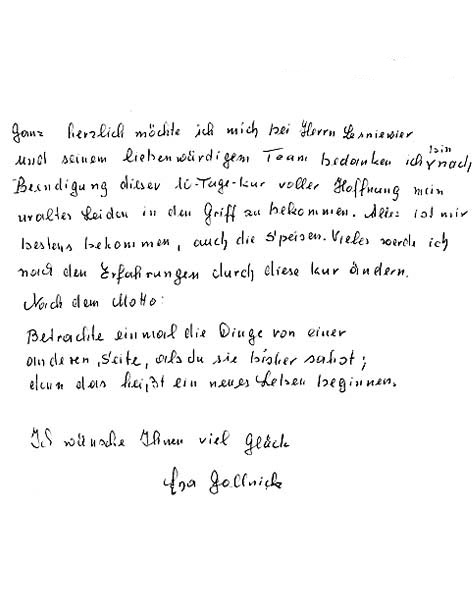 Ganz herzlich möchte ich mich bei Herrn Lesniewier
und seinem liebenwürdigem Team bedanken ich bin nach
Beendigung dieser 10-Tage-Kur voller Hoffnung mein
uraltes Leiden in den Griff zu bekommen. Alles ist mir
bestens bekommen, auch die Speisen. Vieles werde ich
nach den Erfahrungen durch diese Kur ändern.
Nach dem Motto:
Betrachte einmal die Dinge von einer
anderen Seite, als du sie bisher sahst;
denn das heißt ein neues Leben beginnen.
Ich wünsche Ihnen viel Glück
Eva Gollnick